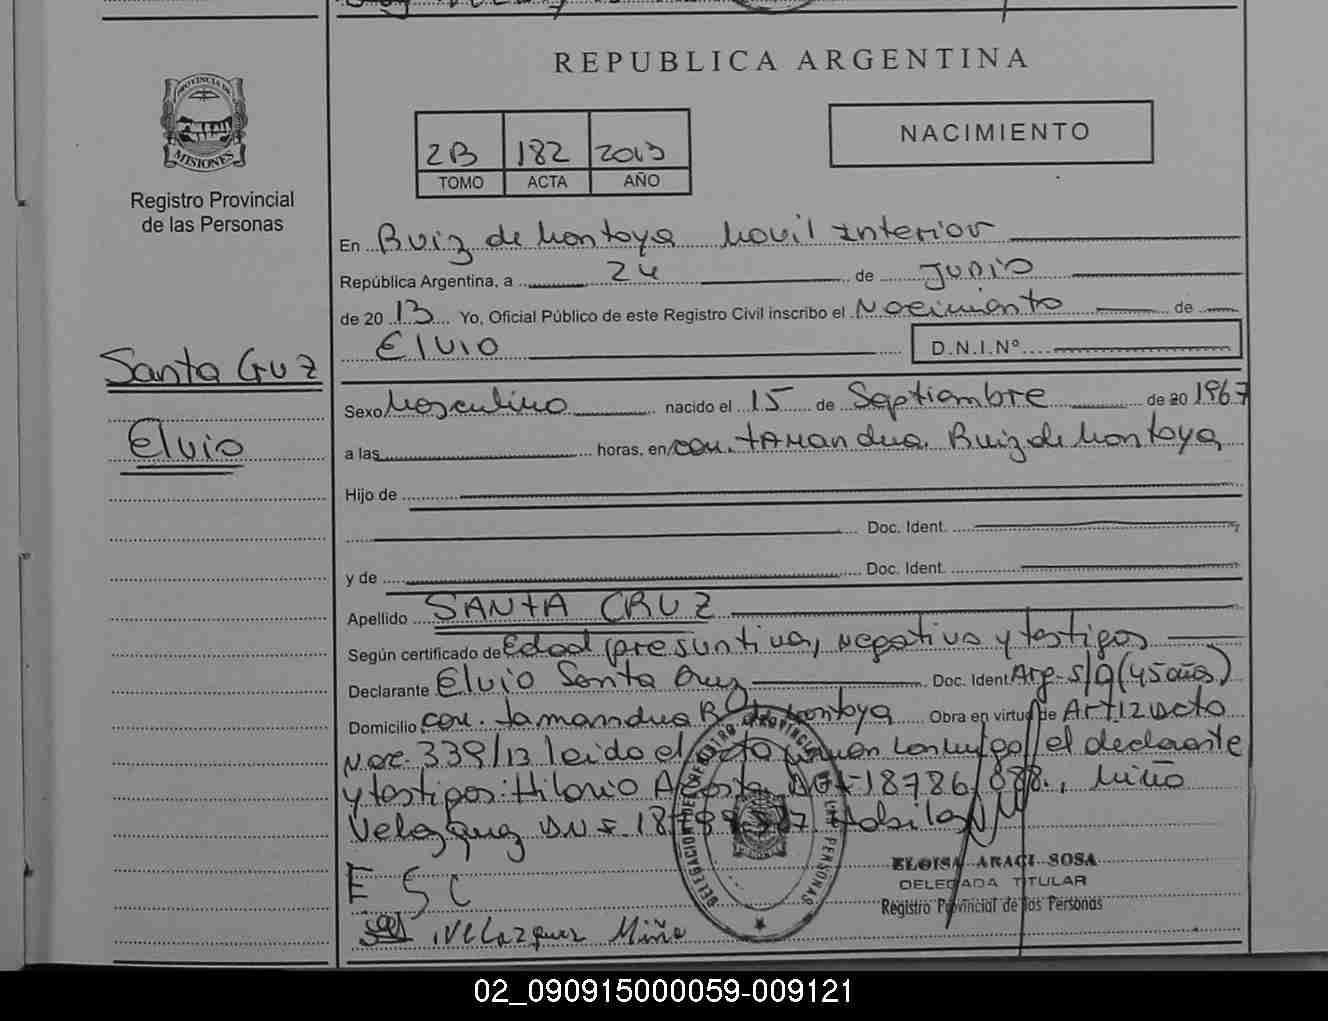 REPUBLICA ARGENTINA
PROVINCIA DE
MISIONES
Registro Provincial
de las Personas
2B 182 2013
TOMO ACTA AÑO
NACIMIENTO
En Ruiz de Montoya Movil Interior
República Argentina, a 24 de Junio
de 20 13 Yo, Oficial Público de este Registro Civil inscribo el Nacimiento de
Elvio D.N.I.Nº
Santa Cruz
Elvio
Sexo Masculino nacido el 15 de Septiembre de 20 1967
a las horas, en Con. Tamandua. Ruiz de Montoya
Hijo de
Doc. Ident.
y de Doc. Ident.
Apellido SANTA CRUZ
Según certificado de Edad presuntiva, negativa y testigos
Declarante Elvio Santa Cruz Doc. Ident Arg-S/D (45 años)
Domicilio Com. Tamandua R. de Montoya Obra en virtud de Art 12 Dcto
Nac. 339/13 leido el acta firman conmigo el declarante
y testigos: Hilario Acosta DNI 18786 888., Miño
Velazquez DNI 18 Habilas
E S C
Velazquez Miño
DELEGACION DEL REGISTRO PROVINCIAL DE LAS PERSONAS
ELOISA ARACI SOSA
DELEGADA TITULAR
Registro Provincial de las Personas
02_090915000059-009121